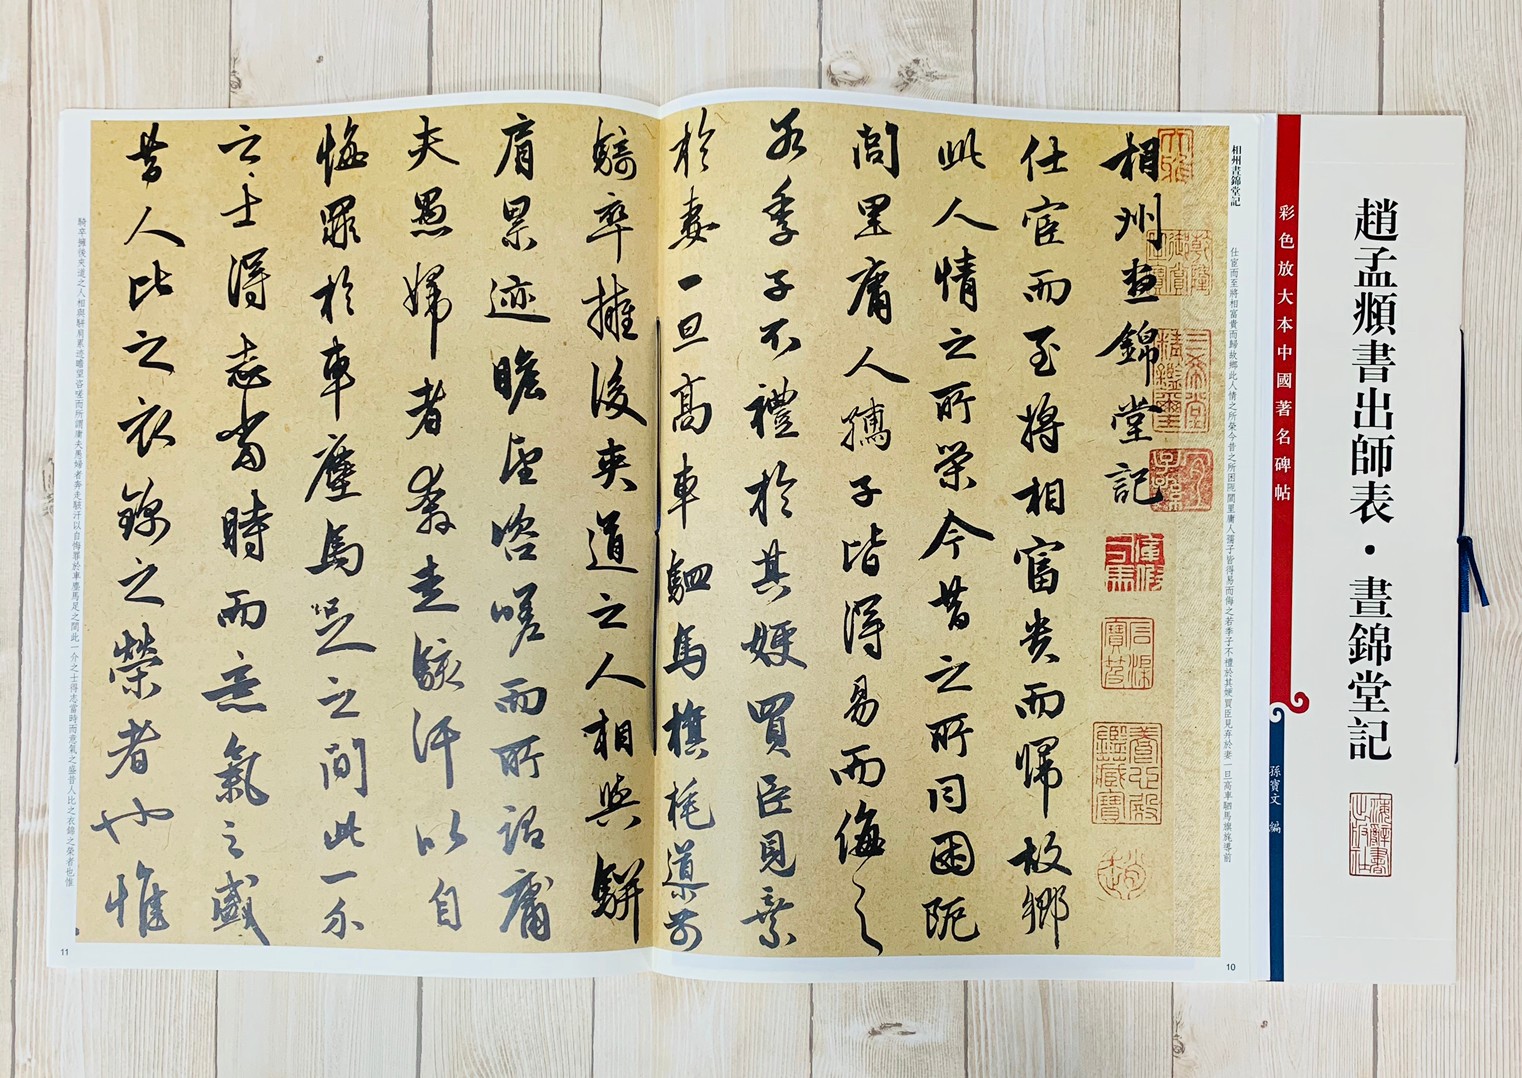 趙孟頫書出師表·晝錦堂記
彩色放大本中國著名碑帖
孫寶文 編
相州晝錦堂記
仕宦而至將相富貴而歸故鄉此人情之所榮今昔之所困阨閭里庸人孺子皆得易而侮之若季子不禮於其嫂買臣見弃於妻一旦高車駟馬旗旄導前
10
相州晝錦堂記
仕宦而至將相富貴而歸故鄉
此人情之所榮今昔之所同困阨
閭里庸人孺子皆得易而侮之
若季子不禮於其嫂買臣見棄
於妻一旦高車駟馬旗旄導前
騎卒擁後夾道之人相與駢
肩累迹瞻望咨嗟而所謂庸
夫愚婦者奔走駭汗以自
悔罪於車塵馬足之間此一介
之士得志當時而意氣之盛
昔人比之衣錦之榮者也惟
騎卒擁後夾道之人相與駢肩累迹瞻望咨嗟而所謂庸夫愚婦者奔走駭汗以自悔罪於車塵馬足之間此一介之士得志當時而意氣之盛昔人比之衣錦之榮者也惟
11